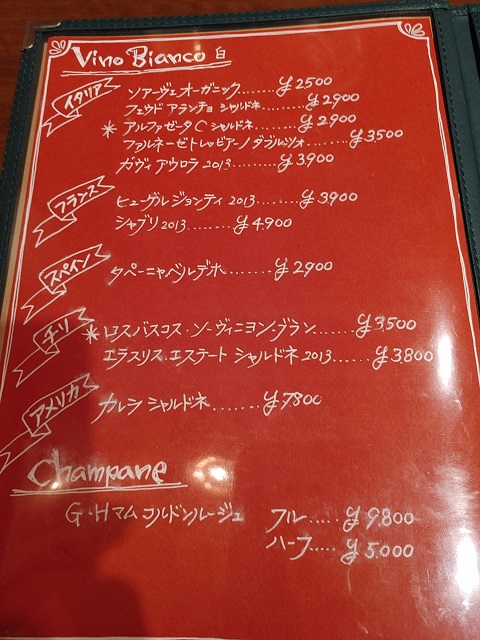 Vino Bianco 白
イタリア
ソアーヴェオーガニック.......¥2500
フェウド アランチョ シャルドネ.........¥2900
*アルファゼータ C シャルドネ.........¥2900
ファルネーゼトレッビアーノ ダブルッツォ....¥3500
ガヴィ アウロラ 2013........¥3,900
フランス
ヒューゲル ジョンティ 2013....¥3,900
シャブリ 2013........¥4,900
スペイン
タペーニャベルデホ.......¥2900
チリ
*ロス・バスコス・ソーヴィニヨン・ブラン.......¥3,500
エラスリス.エステート シャルドネ 2013.....¥3,800
アメリカ
カレラ シャルドネ.......¥7,800
Champane
G・H マム コルドンルージュ フル.....¥9,800
ハーフ.....¥5,000